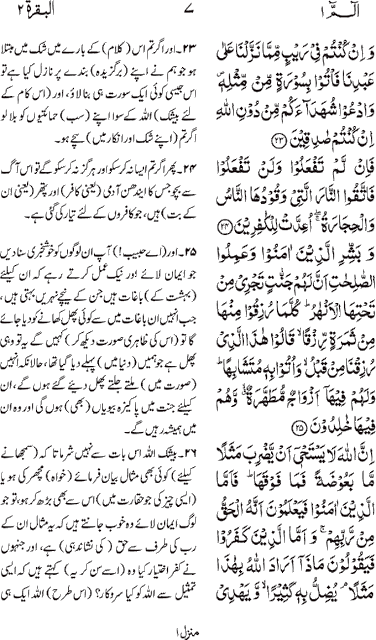 الٓمّٓ ۱
۷
البقرة ۲
وَ اِنْ كُنْتُمْ فِیْ رَیْبٍ مِّمَّا نَزَّلْنَا عَلٰی
عَبْدِنَا فَاْتُوْا بِسُوْرَةٍ مِّنْ مِّثْلِهٖ ۪
وَ ادْعُوْا شُهَدَآءَكُمْ مِّنْ دُوْنِ اللّٰهِ
اِنْ كُنْتُمْ صٰدِقِیْنَ ﴿۲۳﴾
فَاِنْ لَّمْ تَفْعَلُوْا وَ لَنْ تَفْعَلُوْا
فَاتَّقُوا النَّارَ الَّتِیْ وَ قُوْدُهَا النَّاسُ
وَ الْحِجَارَةُ ۖۚ اُعِدَّتْ لِلْكٰفِرِیْنَ ﴿۲۴﴾
وَ بَشِّرِ الَّذِیْنَ اٰمَنُوْا وَ عَمِلُوا
الصّٰلِحٰتِ اَنَّ لَهُمْ جَنّٰتٍ تَجْرِیْ مِنْ
تَحْتِهَا الْاَنْهٰرُ ؕ كُلَّمَا رُزِقُوْا مِنْهَا
مِنْ ثَمَرَةٍ رِّزْقًا ۙ قَالُوْا هٰذَا الَّذِیْ
رُزِقْنَا مِنْ قَبْلُ ۙ وَ اُتُوْا بِهٖ مُتَشَابِهًا ؕ
وَ لَهُمْ فِیْهَاۤ اَزْوَاجٌ مُّطَهَّرَةٌ ۙۗ وَّ هُمْ
فِیْهَا خٰلِدُوْنَ ﴿۲۵﴾
اِنَّ اللّٰهَ لَا یَسْتَحْیٖۤ اَنْ یَّضْرِبَ مَثَلًا
مَّا بَعُوْضَةً فَمَا فَوْقَهَا ؕ فَاَمَّا
الَّذِیْنَ اٰمَنُوْا فَیَعْلَمُوْنَ اَنَّهُ الْحَقُّ
مِنْ رَّبِّهِمْ ۚ وَ اَمَّا الَّذِیْنَ كَفَرُوْا
فَیَقُوْلُوْنَ مَاذَاۤ اَرَادَ اللّٰهُ بِهٰذَا
مَثَلًا ۘ یُضِلُّ بِهٖ كَثِیْرًا ۙ وَّ یَهْدِیْ
۲۳۔ اور اگر تم اس (کلام) کے بارے میں شک میں مبتلا
ہو جو ہم نے اپنے (برگزیدہ) بندے پر نازل کیا ہے تو
اس جیسی کوئی ایک سورت ہی بنا لاؤ، اور (اس کام کے لئے
بیشک) اللہ کے سوا اپنے (سب) حمائتیوں کو بلا لو
اگر تم (اپنے شک اور انکار میں) سچے ہو۔
۲۴۔ پھر اگر تم ایسا نہ کر سکو اور ہرگز نہ کر سکو گے تو اس آگ
سے بچو جس کا ایندھن آدمی (یعنی کافر) اور پتھر (یعنی ان
کے بت) ہیں، جو کافروں کے لئے تیار کی گئی ہے۔
۲۵۔ اور (اے حبیب!) آپ ان لوگوں کو خوشخبری سنا دیں
جو ایمان لائے اور نیک عمل کرتے رہے کہ ان کیلئے
(بہشت کے) باغات ہیں جن کے نیچے نہریں بہتی ہیں،
جب انہیں ان باغات میں سے کوئی پھل کھانے کو دیا جائے
گا تو (اس کی ظاہری صورت دیکھ کر) کہیں گے یہ تو وہی
پھل ہے جو ہمیں (دنیا میں) پہلے دیا گیا تھا، حالانکہ انہیں
(صورت میں) ملتے جلتے پھل دیئے گئے ہوں گے، ان
کیلئے جنت میں پاکیزہ بیویاں (بھی) ہوں گی اور وہ ان
میں ہمیشہ رہیں گے۔
۲۶۔ بیشک اللہ اس بات سے نہیں شرماتا کہ (سمجھانے
کیلئے) کوئی بھی مثال بیان فرمائے (خواہ) مچھر کی ہو یا
(ایسی چیز کی جو حقارت میں) اس سے بھی بڑھ کر ہو، تو جو
لوگ ایمان لائے وہ خوب جانتے ہیں کہ یہ مثال ان کے
رب کی طرف سے حق (کی نشاندہی) ہے، اور جنہوں
نے کفر اختیار کیا وہ (اسے سن کر یہ) کہتے ہیں کہ ایسی
تمثیل سے اللہ کو کیا سروکار؟ (اس طرح) اللہ ایک ہی
منزل ۱